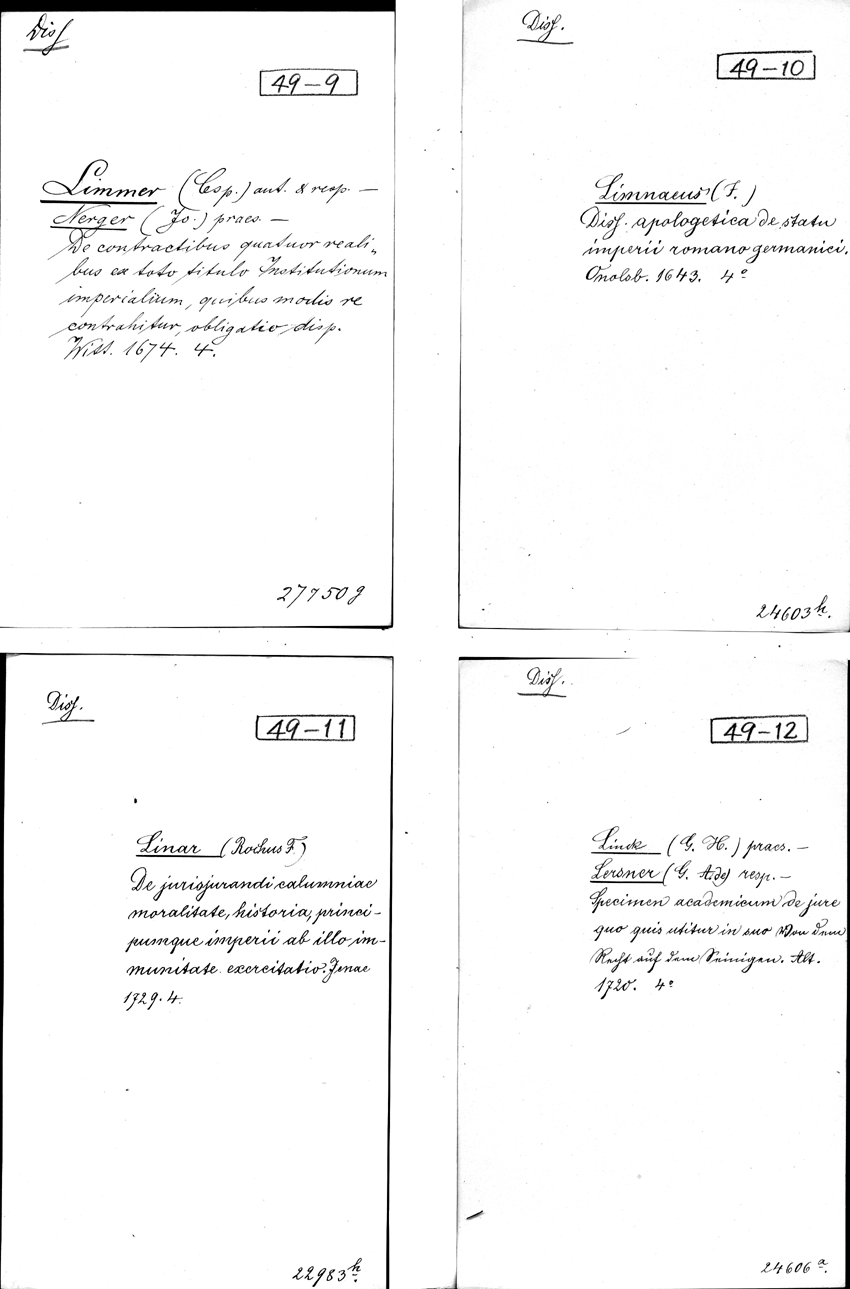 Diss
49-9
Limmer (Csp.) aut. & resp. —
Nerger (Jo.) praes. —
De contractibus quatuor reali-
bus ex toto titulo Institutionum
imperialium, quibus modis re
contrahitur, obligatio, disp.
Witt. 1674. 4.
27750g
Diss.
49-10
Limnaeus (F.)
Diss. apologetica de statu
imperii romano germanici.
Onolsb. 1643. 4°
24603h.
Diss.
49-11
Linar (Rochus F.)
De jurisjurandi calumniae
moralitate, historia, princi-
pumque imperii ab illo im-
munitate exercitatio. Jenae
1729. 4.
22983h.
Diss.
49-12
Linck (G. H.) praes. —
Lersner (G. A. de) resp. —
Specimen academicum de jure
quo quis utitur in suo Von dem
Recht auf dem Seinigen. Alt.
1720. 4°
24606a.